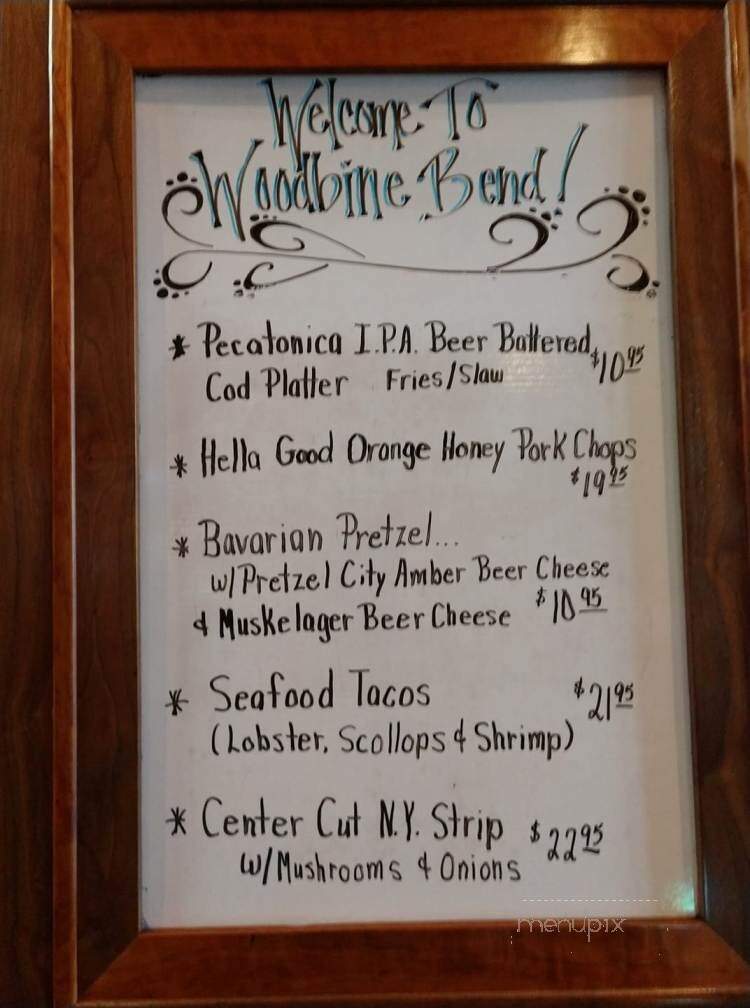 Welcome To
Woodbine Bend!
* Pecatonica I.P.A. Beer Battered
Cod Platter Fries/Slaw $10.95
* Hella Good Orange Honey Pork Chops
$19.95
* Bavarian Pretzel...
w/Pretzel City Amber Beer Cheese
& Muskelager Beer Cheese $10.95
* Seafood Tacos $21.95
(Lobster, Scollops & Shrimp)
* Center Cut N.Y. Strip $22.95
w/Mushrooms & Onions
menupix